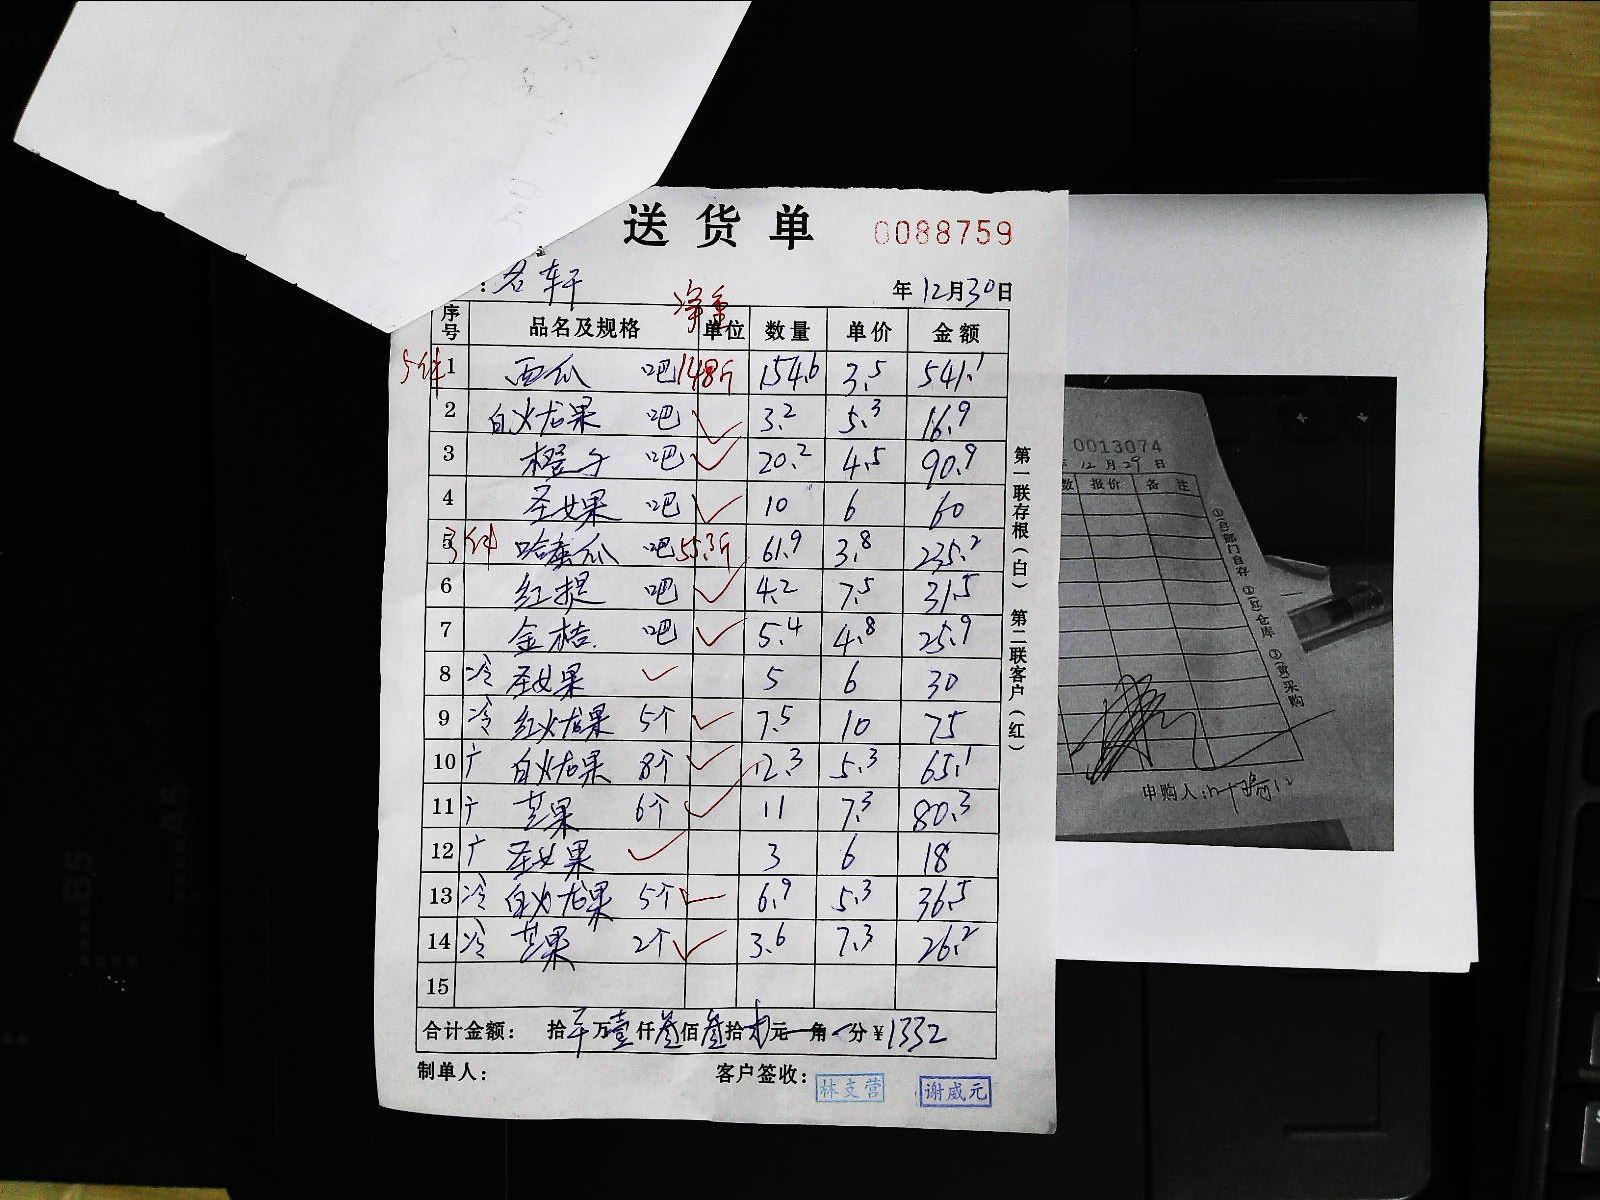 送货单 0088759
：名轩 年12月30日
净重
序号 品名及规格 单位 数量 单价 金额
5件 1 西瓜 吧 148斤 154.6 3.5 541.1
2 白火龙果 吧 3.2 5.3 16.9
3 橙子 吧 20.2 4.5 90.9
4 圣女果 吧 10 6 60
3件 5 哈密瓜 吧 55.3斤 61.9 3.8 235.2
6 红提 吧 4.2 7.5 31.5
7 金桔 吧 5.4 4.8 25.9
8 冷 圣女果 5 6 30
9 冷 红火龙果 5个 7.5 10 75
10 广 白火龙果 8个 12.3 5.3 65.1
11 广 芒果 6个 11 7.3 80.3
12 广 圣女果 3 6 18
13 冷 白火龙果 5个 6.9 5.3 36.5
14 冷 芒果 2个 3.6 7.3 26.2
15
合计金额： 拾 万壹仟叁佰叁拾 元 角 分 ￥1332
制单人： 客户签收： 林支营 谢威元
第一联存根（白） 第二联客户（红）
0013074
年12月29日
数 报价 备注
①(白)部门自存 ②(红)仓库 ③(黄)采购
申购人：叶
B5
A5